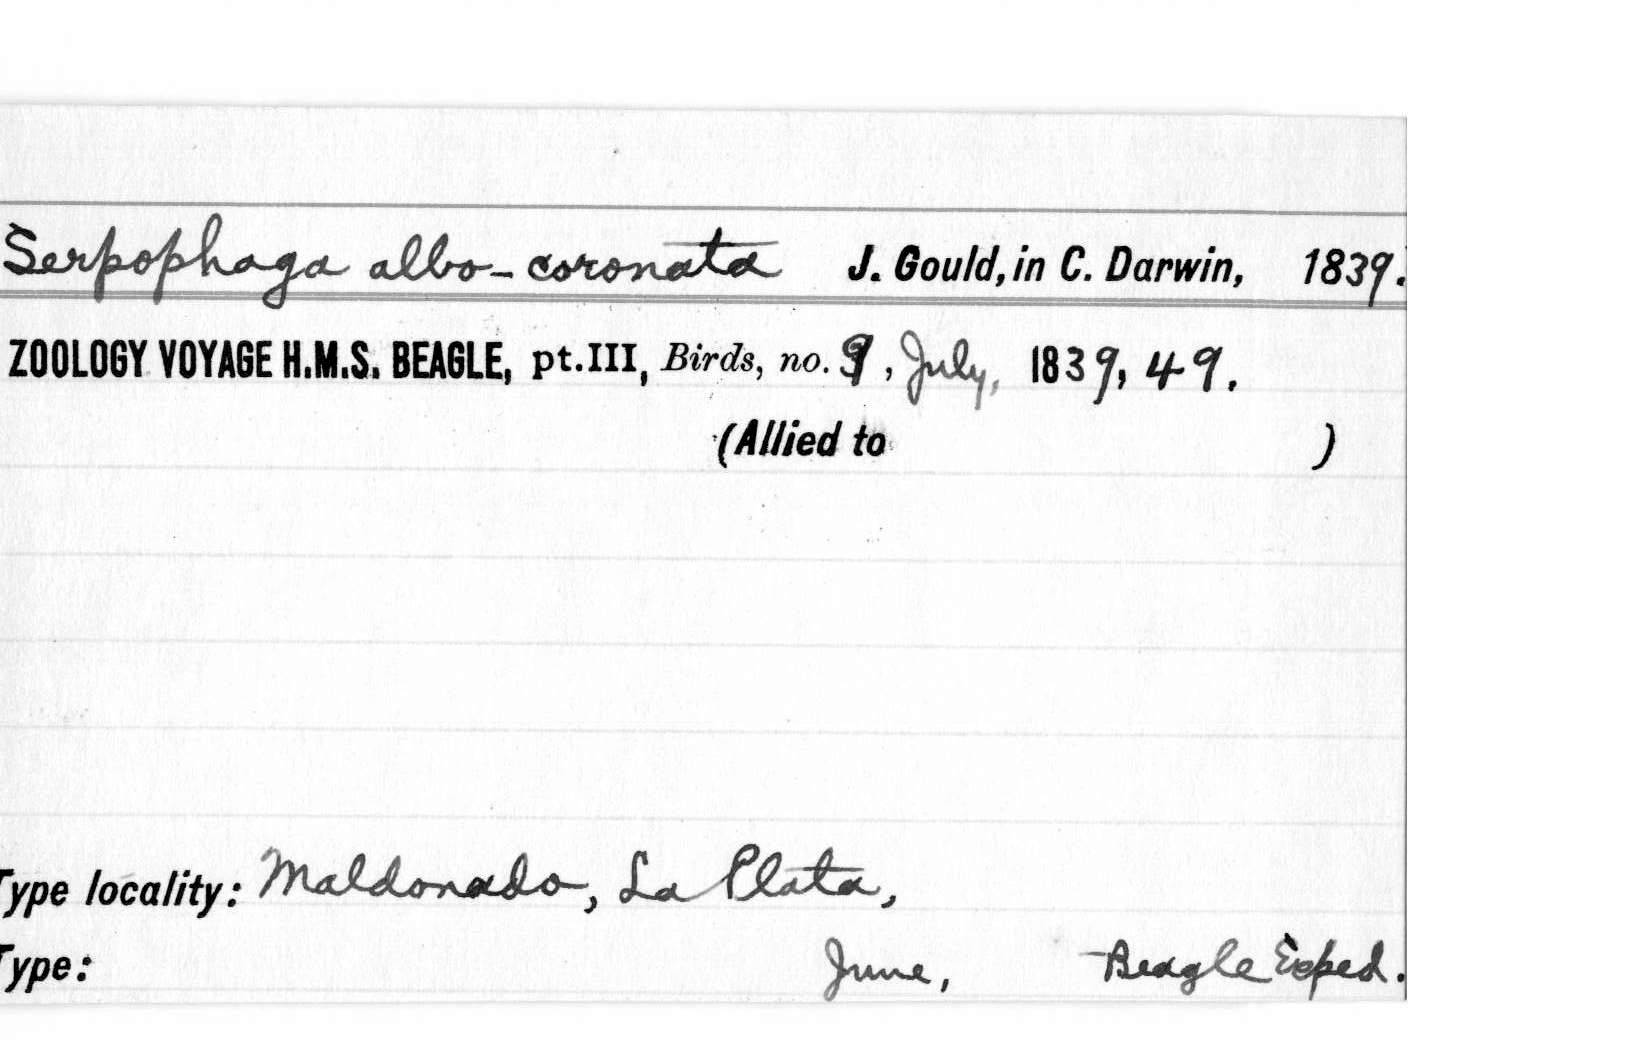 Serpophaga albo-coronata J. Gould, in C. Darwin, 1839.
ZOOLOGY VOYAGE H.M.S. BEAGLE, pt.III, Birds, no. 9, July, 1839, 49.
(Allied to )
Type locality: Maldonado, La Plata,
Type: June, Beagle Exped.